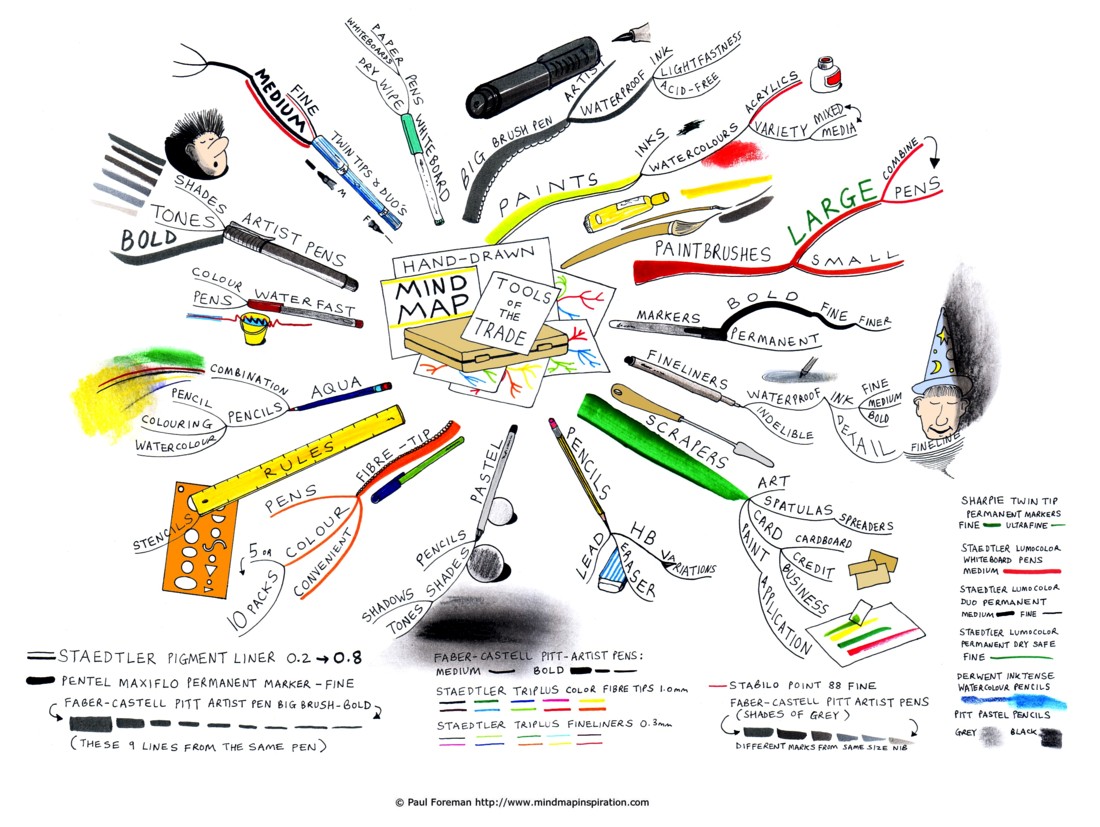 HAND-DRAWN
MIND
MAP
TOOLS
OF
THE
TRADE
PAINTS
INKS
WATERCOLOURS
ACRYLICS
VARIETY
MIXED
MEDIA
PAINTBRUSHES
LARGE
COMBINE
PENS
SMALL
MARKERS
BOLD
FINE
FINER
PERMANENT
FINELINERS
WATERPROOF
INK
FINE
MEDIUM
BOLD
DETAIL
INDELIBLE
FINELINE
SCRAPERS
ART
SPATULAS
SPREADERS
CARD
CARDBOARD
CREDIT
BUSINESS
PAINT
APPLICATION
PENCILS
HB
VARIATIONS
ERASER
LEAD
PASTEL
PENCILS
SHADES
SHADOWS
TONES
FIBRE-TIP
PENS
COLOUR
CONVENIENT
5 OR
10 PACK-S
RULES
STENCILS
AQUA
COMBINATION
PENCILS
PENCIL
COLOURING
WATERCOLOUR
WATERFAST
COLOUR
PENS
ARTIST PENS
SHADES
TONES
BOLD
TWIN TIPS & DUO'S
MEDIUM
FINE
M
F
WHITEBOARD
PENS
DRY WIPE
PAPER
WHITEBOARDS
BIG BRUSH PEN
ARTIST
WATERPROOF
INK
LIGHTFASTNESS
ACID-FREE
STAEDTLER PIGMENT LINER 0.2 → 0.8
PENTEL MAXIFLO PERMANENT MARKER - FINE
FABER-CASTELL PITT ARTIST PEN BIG BRUSH-BOLD
(THESE 9 LINES FROM THE SAME PEN)
FABER-CASTELL PITT-ARTIST PENS:
MEDIUM BOLD
STAEDTLER TRIPLUS COLOR FIBRE TIPS 1.0mm
STAEDTLER TRIPLUS FINELINERS 0.3mm
STABILO POINT 88 FINE
FABER-CASTELL PITT ARTIST PENS
(SHADES OF GREY)
DIFFERENT MARKS FROM SAME SIZE NIB
SHARPIE TWIN TIP
PERMANENT MARKERS
FINE ULTRAFINE
STAEDTLER LUMOCOLOR
WHITEBOARD PENS
MEDIUM
STAEDTLER LUMOCOLOR
DUO PERMANENT
MEDIUM FINE
STAEDTLER LUMOCOLOR
PERMANENT DRY SAFE
FINE
DERWENT INKTENSE
WATERCOLOUR PENCILS
PITT PASTEL PENCILS
GREY BLACK
© Paul Foreman http://www.mindmapinspiration.com